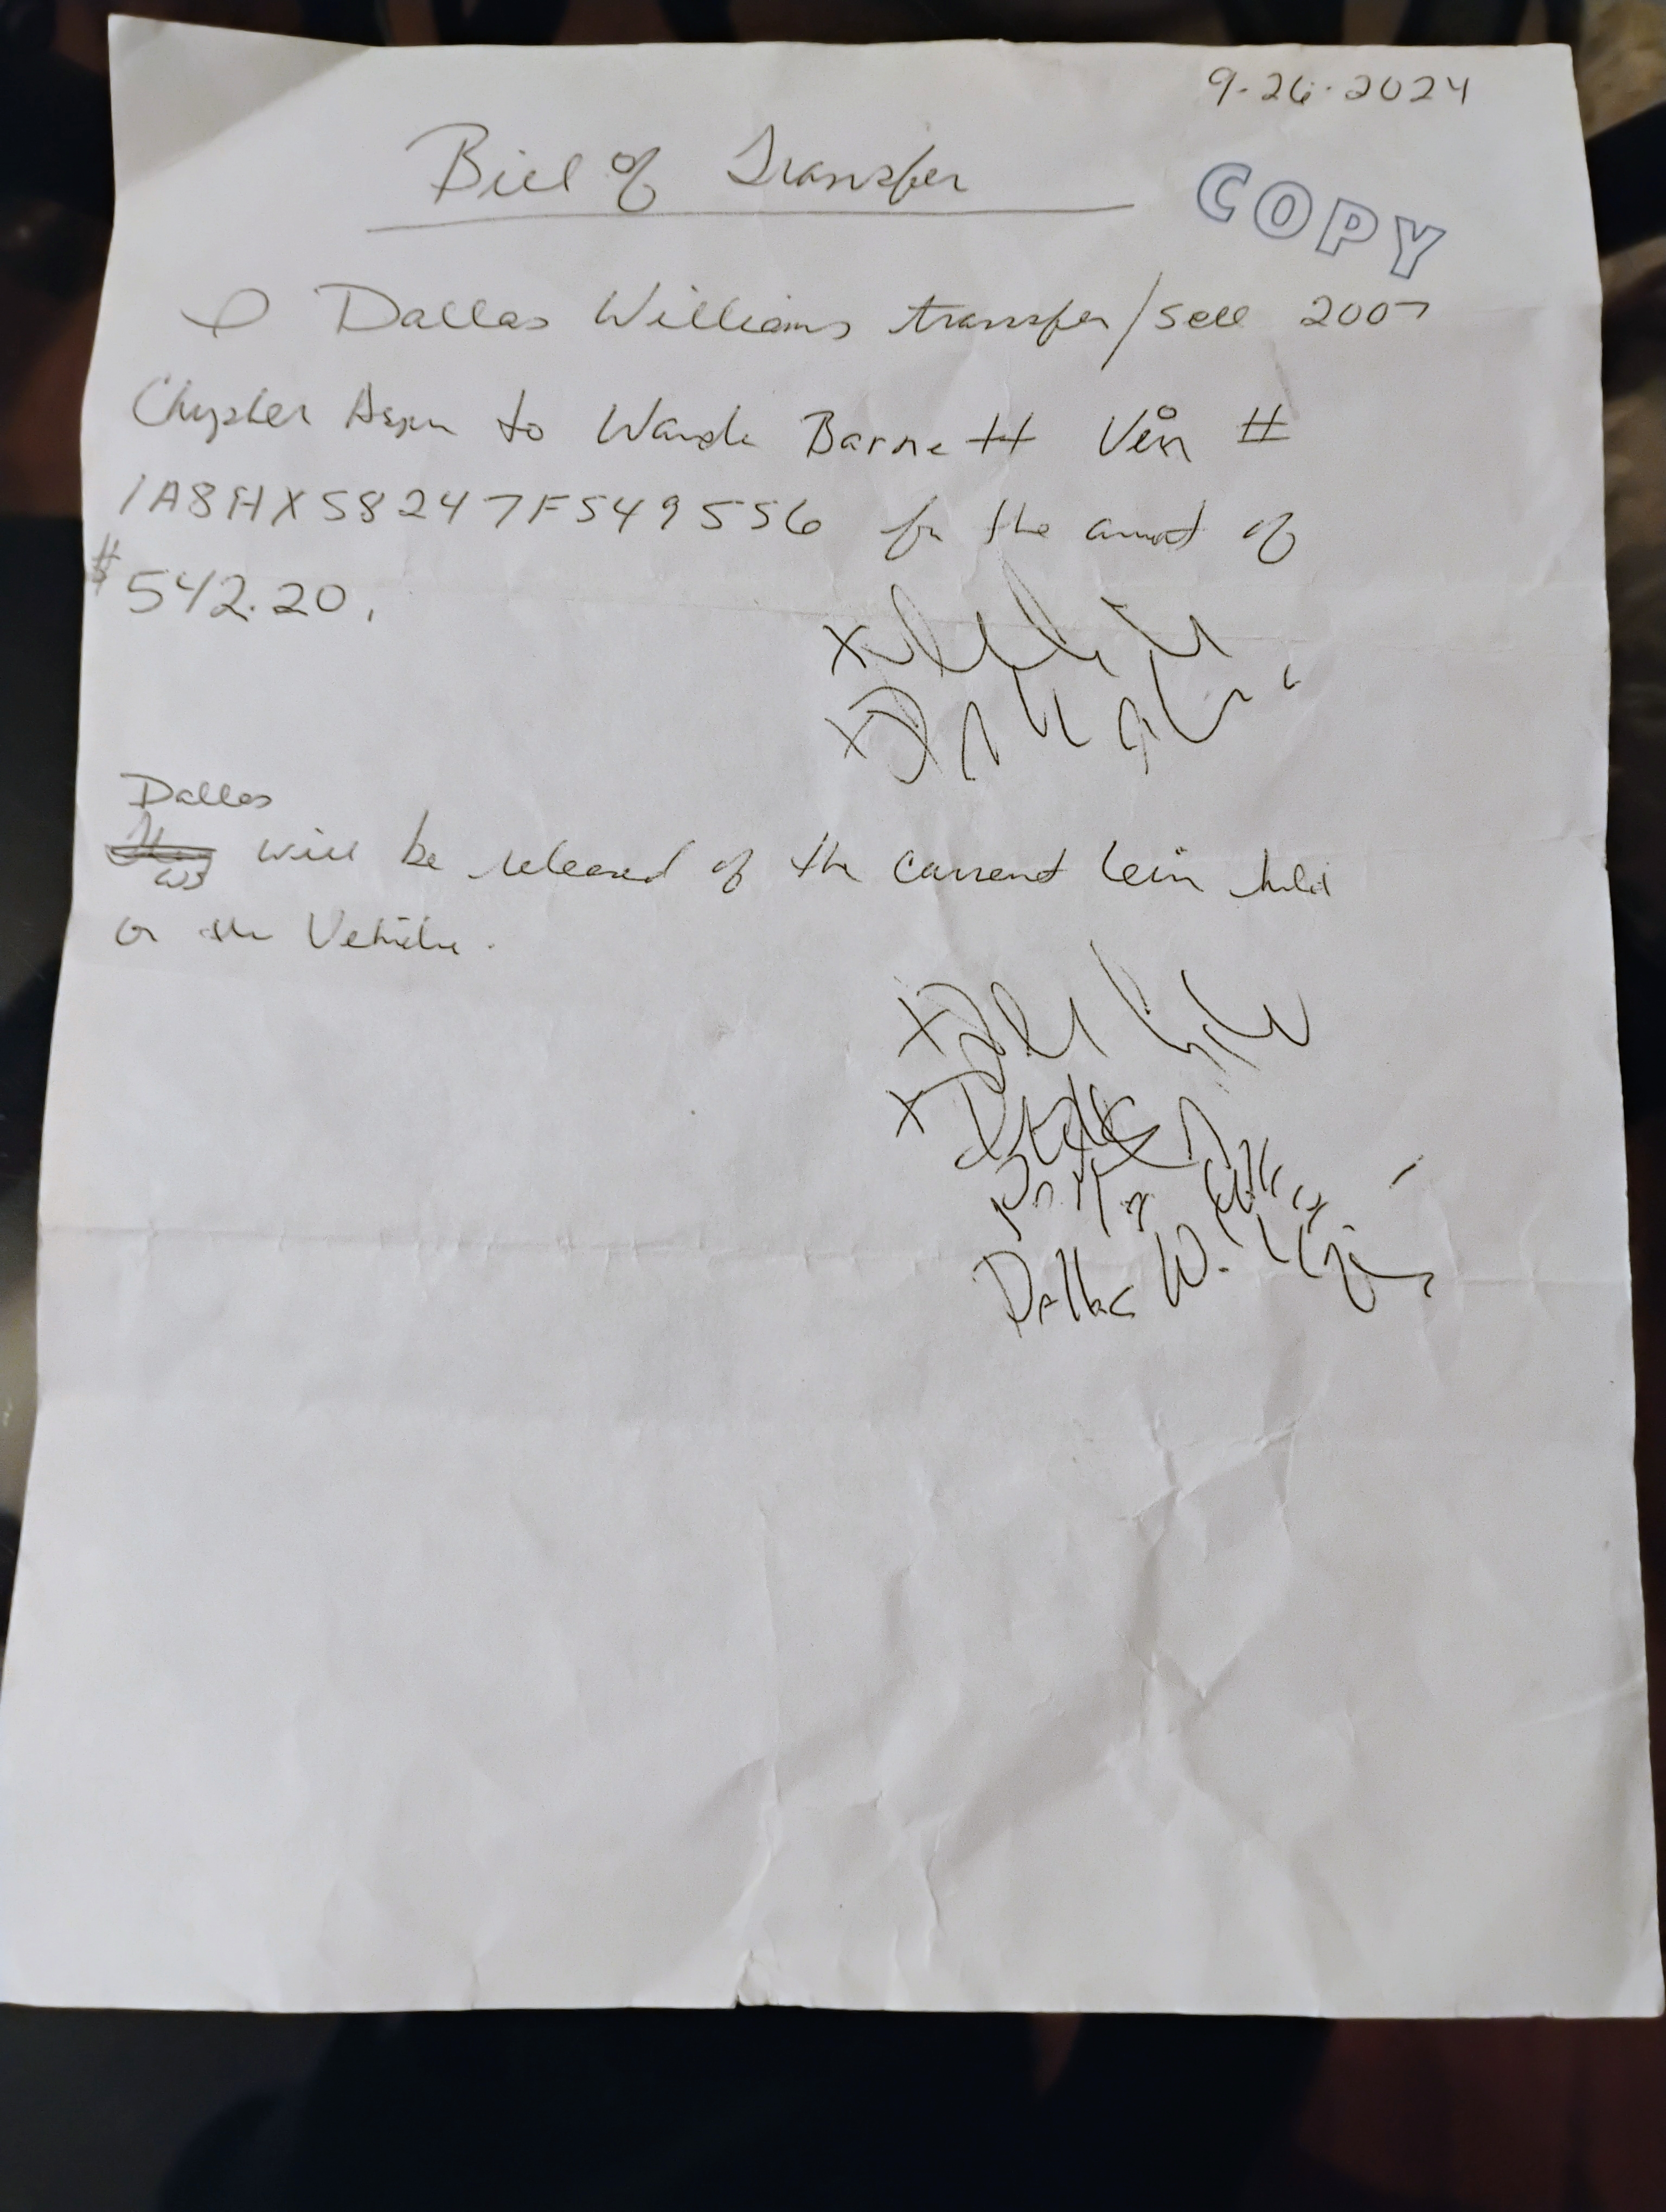 9-26-2024
Bill of Transfer
COPY
I Dallas Williams transfer/sell 2007
Chrysler Aspen to Wanda Barnett Vin #
1A8HX58247F549556 for the amount of
$542.20.
X
X
Dallas
WB will be released of the current lein held
on the Vehicle.
X
X
Dallas Williams